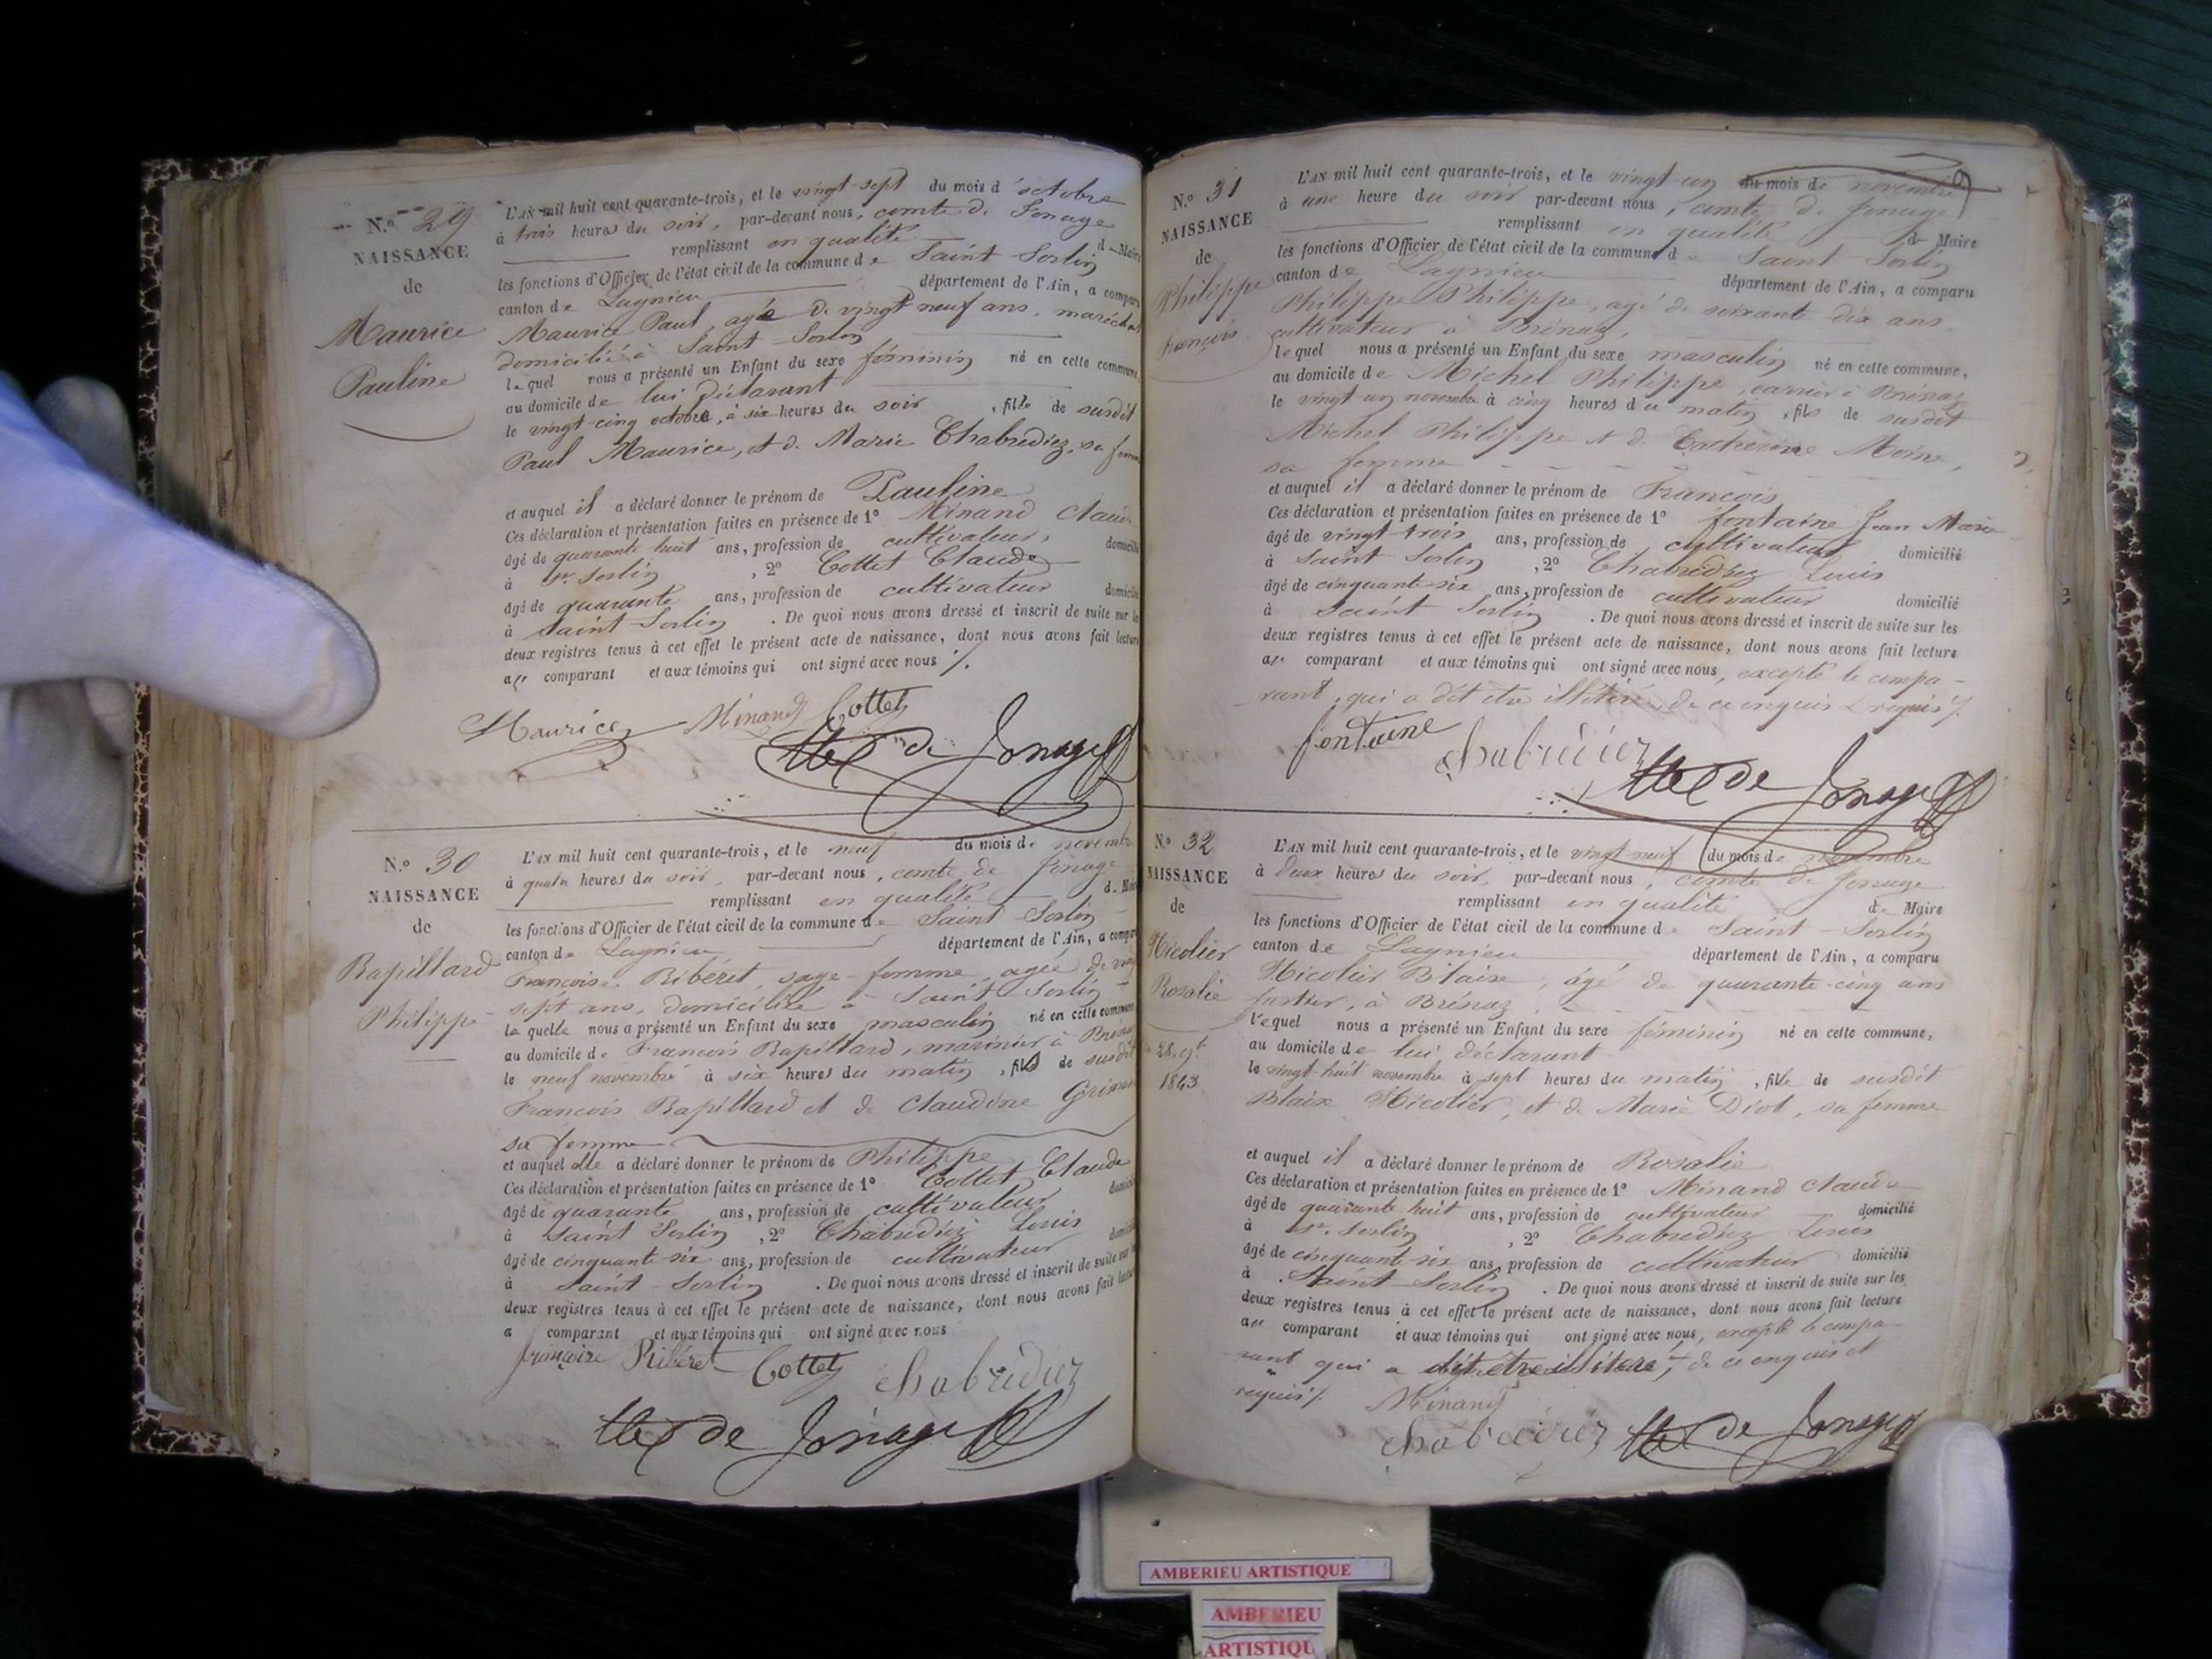 N.º 29
NAISSANCE
de
Maurice
Pauline
L'AN mil huit cent quarante-trois, et le vingt-sept du mois d'octobre
à trois heures du soir, par-devant nous, comte de Jonage
remplissant en qualité de Maire
les fonctions d'Officier de l'état civil de la commune de Saint-Sorlin
canton de Lagnieu département de l'Ain, a comparu
Maurice Paul, agé de vingt neuf ans, maréchal
domicilié à Saint-Sorlin
lequel nous a présenté un Enfant du sexe féminin né en cette commune,
au domicile de lui déclarant
le vingt-cinq octobre, à six heures du soir, fille de susdit
Paul Maurice, et de Marie Chabrediez, sa femme
et auquel il a déclaré donner le prénom de Pauline
Ces déclaration et présentation faites en présence de 1º Minand Claude
âgé de quarante huit ans, profession de cultivateur, domicilié
à St. Sorlin, 2º Cottet Claude
âgé de quarante ans, profession de cultivateur domicilié
à Saint-Sorlin. De quoi nous avons dressé et inscrit de suite sur les
deux registres tenus à cet effet le présent acte de naissance, dont nous avons fait lecture
au comparant et aux témoins qui ont signé avec nous ./.
Maurice Minand Cottet
de Jonage
N.º 30
NAISSANCE
de
Rapillard
Philippe
L'AN mil huit cent quarante-trois, et le neuf du mois de novembre
à quatre heures du soir, par-devant nous, comte de Jonage
remplissant en qualité de Maire
les fonctions d'Officier de l'état civil de la commune de Saint-Sorlin
canton de Lagnieu département de l'Ain, a comparu
Françoise Ribéret, sage-femme, agée de vingt
sept ans, domiciliée à Saint-Sorlin
laquelle nous a présenté un Enfant du sexe masculin né en cette commune
au domicile de François Rapillard, marinier à Brénaz
le neuf novembre à six heures du matin, fils de susdit
François Rapillard et de Claudine
sa femme
et auquel elle a déclaré donner le prénom de Philippe
Ces déclaration et présentation faites en présence de 1º Cottet Claude
âgé de quarante ans, profession de cultivateur domicilié
à Saint Sorlin, 2º Chabrediez Louis
âgé de cinquante-six ans, profession de cultivateur domicilié
à Saint-Sorlin. De quoi nous avons dressé et inscrit de suite sur les
deux registres tenus à cet effet le présent acte de naissance, dont nous avons fait lecture
a comparant et aux témoins qui ont signé avec nous
françoise Ribéret Cottet Chabrediez
de Jonage
N.º 31
NAISSANCE
de
Philippe
François
L'AN mil huit cent quarante-trois, et le vingt-un du mois de novembre
à une heure du soir par-devant nous, comte de Jonage
remplissant en qualité de Maire
les fonctions d'Officier de l'état civil de la commune de Saint-Sorlin
canton de Lagnieu département de l'Ain, a comparu
Philippe Philippe, agé de soixante dix ans,
cultivateur à Brénaz,
lequel nous a présenté un Enfant du sexe masculin né en cette commune,
au domicile de Michel Philippe, carrier à Brénaz
le vingt-un novembre à cinq heures du matin, fils de susdit
Michel Philippe et de Catherine Moine,
sa femme
et auquel il a déclaré donner le prénom de François
Ces déclaration et présentation faites en présence de 1º fontaine Jean Marie
âgé de vingt-trois ans, profession de cultivateur domicilié
à Saint Sorlin, 2º Chabrediez Louis
âgé de cinquante-six ans, profession de cultivateur domicilié
à Saint Sorlin. De quoi nous avons dressé et inscrit de suite sur les
deux registres tenus à cet effet le présent acte de naissance, dont nous avons fait lecture
au comparant et aux témoins qui ont signé avec nous, excepté le compa-
rant, qui a dit etre illitéré, de ce enquis & requis ./.
fontaine Chabrediez
de Jonage
N.º 32
NAISSANCE
de
Nicolier
Rosalie
28. 9bre
1843
L'AN mil huit cent quarante-trois, et le vingt-neuf du mois de novembre
à deux heures du soir, par-devant nous, comte de Jonage
remplissant en qualité de Maire
les fonctions d'Officier de l'état civil de la commune de Saint-Sorlin
canton de Lagnieu département de l'Ain, a comparu
Nicolier Blaise, agé de quarante-cinq ans
à Brénaz
lequel nous a présenté un Enfant du sexe féminin né en cette commune,
au domicile de lui déclarant
le vingt-huit novembre à sept heures du matin, fille de susdit
Blaise Nicolier, et de Marie Diot, sa femme
et auquel il a déclaré donner le prénom de Rosalie
Ces déclaration et présentation faites en présence de 1º Minand Claude
âgé de quarante-huit ans, profession de cultivateur domicilié
à St. Sorlin, 2º Chabrediez Louis
âgé de cinquante-six ans, profession de cultivateur domicilié
à Saint-Sorlin. De quoi nous avons dressé et inscrit de suite sur les
deux registres tenus à cet effet le présent acte de naissance, dont nous avons fait lecture
au comparant et aux témoins qui ont signé avec nous, excepté le compa-
rant qui a dit être illitéré, de ce enquis et
requis ./. Minand
Chabrediez de Jonage
AMBERIEU ARTISTIQUE
AMBERIEU
ARTISTIQU